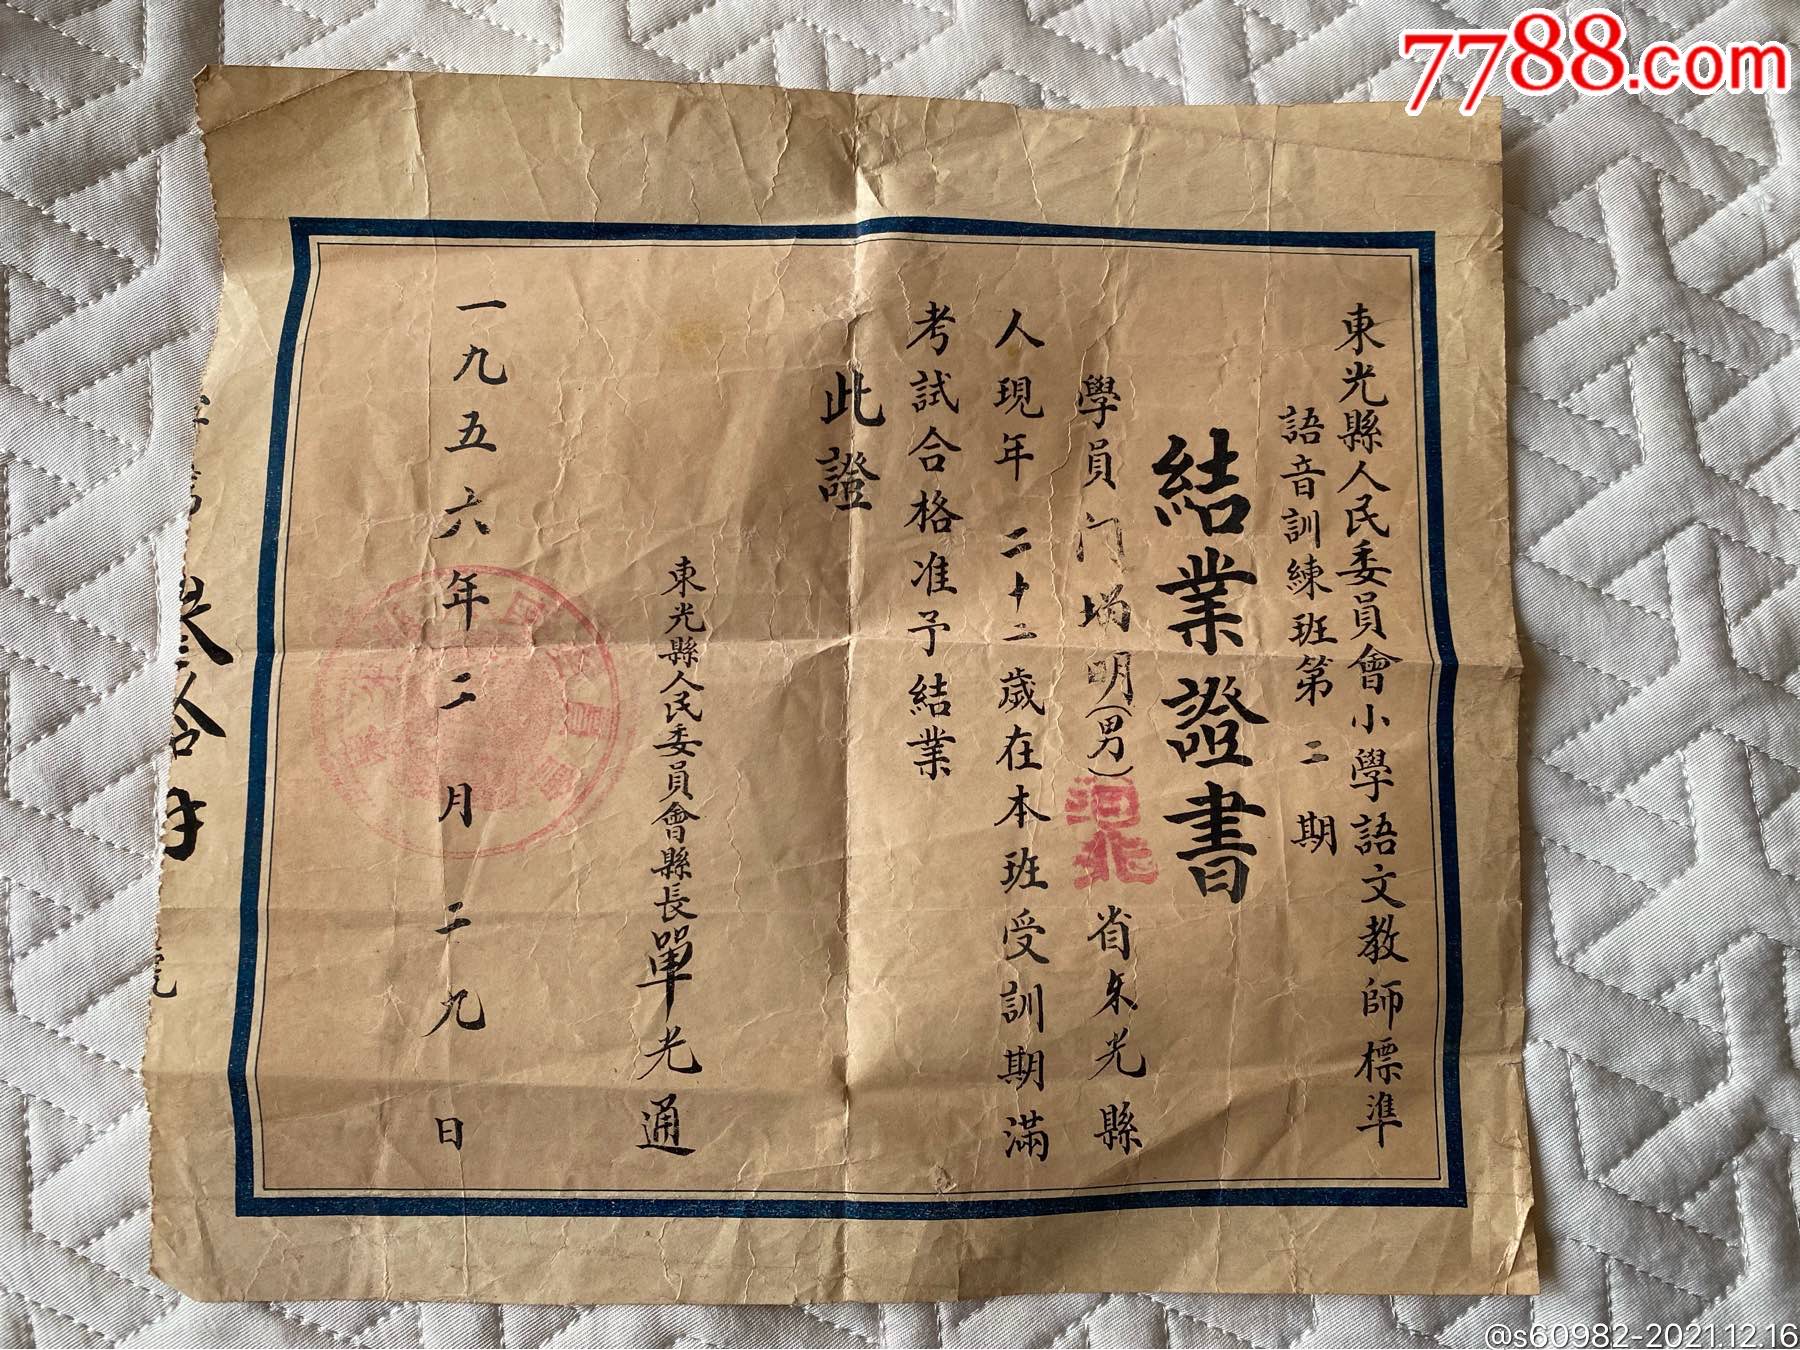 7788.com
東光縣人民委員會小學語文教師標準
語音訓練班第二期
結業證書
學員门堨明(男)河北省东光縣
人現年二十二歲在本班受訓期滿
考試合格准予結業
此證
東光縣人民委員會縣長單光通
一九五六年二月二九日
叁拾
@s60982-2021.12.16